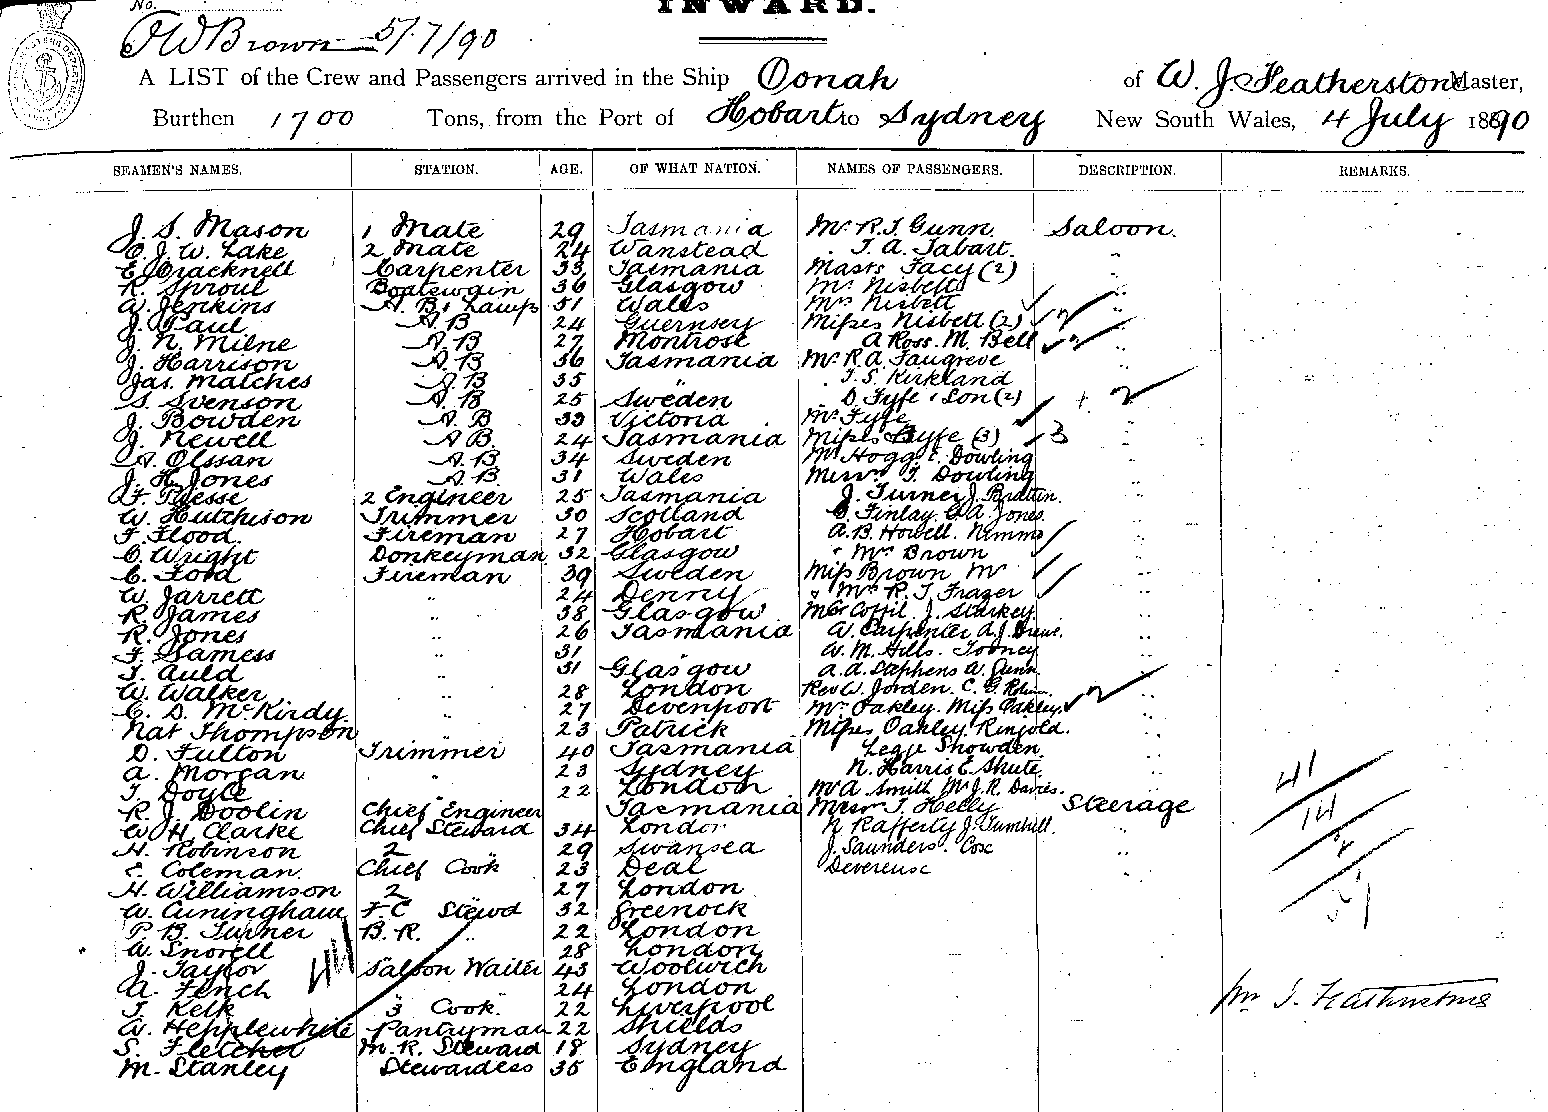 No.
INWARD.
Brown 5/7/90
A LIST of the Crew and Passengers arrived in the Ship Oonah of W. J. Featherstone Master,
Burthen 1700 Tons, from the Port of Hobart to Sydney New South Wales, 4 July 1890
SEAMEN'S NAMES. STATION. AGE. OF WHAT NATION. NAMES OF PASSENGERS. DESCRIPTION. REMARKS.
J. S. Mason 1 Mate 29 Tasmania Mr R. T. Gunn Saloon
C. J. W. Lake 2 Mate 24 Wanstead T. A. Tabart "
E. Cracknell Carpenter 33 Tasmania Masts Facy (2) "
R. Sproul Boatswain 36 Glasgow Mr Nisbett "
W. Jenkins A. B. Lamps 51 Wales Mrs Nisbett "
J. Paul A. B 24 Guernsey Misses Nisbett (2) 2 "
J. N. Milne A. B 27 Montrose A Ross. M. Bell 2 "
J. Harrison A. B 36 Tasmania Mr R. A. "
Jas. Matches A. B 35 " T. S. Kirkland "
S. Svenson A. B 25 Sweden D. Fyfe & Son (2) + 2
J. Bowden A. B 33 Victoria Mrs Fyfe "
J. Newell A. B. 24 Tasmania Misses Fyfe (3) 3 "
A. Olssan A. B 34 Sweden Mr Hogg E. Dowling "
J. H. Jones A. B. 31 Wales Messrs T. Dowling "
F. Piesse 2 Engineer 25 Tasmania J. Turner J. "
W. Hutchison Trimmer 30 Scotland Finlay. G. A. Jones. "
F. Flood Fireman 27 Hobart A. B. Howell. Nimmo "
C. Wright Donkeyman 32 Glasgow " Mrs Brown "
C. Ford Fireman 39 Sweden Miss Brown Mr "
W. Jarrett " 24 Denny & Mrs R. T. Frazer "
R. James " 38 Glasgow J. Starkey "
R. Jones " 26 Tasmania W. Carpenter A. J. "
F. " 31 " W. M. Hills. "
T. Auld " 31 Glasgow A. A. Stephens W. Gunn "
W. Walker " 28 London Rev W. Jorden. C. G. 2 "
C. D. McKirdy " 27 Devenport Mr Oakley. Miss Oakley "
Nat Thompson " 23 Patrick Misses Oakley. Ringold. "
D. Fulton Trimmer 40 Tasmania Legge Snowden "
A. Morgan " 23 Sydney N. Harris E. Shute "
T. Doyle " 22 London Mr A Smith Mr J. R. Davies. " 41
R. J. Doolin Chief Engineer Tasmania Messrs T. Helly Steerage
W. H. Clarke Chief Steward 34 London N Rafferty J. Turnbull. " 14
H. Robinson 2 " 29 Swansea J. Saunders. Cox "
E. Coleman Chief Cook 23 Deal Devereux "
H. Williamson 2 " 27 London
W. Cuningham F. C Stewd 32 Greenock
P. B. Turner B. R. " 22 London
W. Snorell 28 London
J. Taylor 44 Saloon Waiter 43 Woolwich
A. Fench " 24 London
T. Kelk 3 Cook 22 Liverpool
W. Hepplewhite Pantryman 22 Shields
S. Fletcher M. R. Steward 18 Sydney
M. Stanley Stewardess 35 England